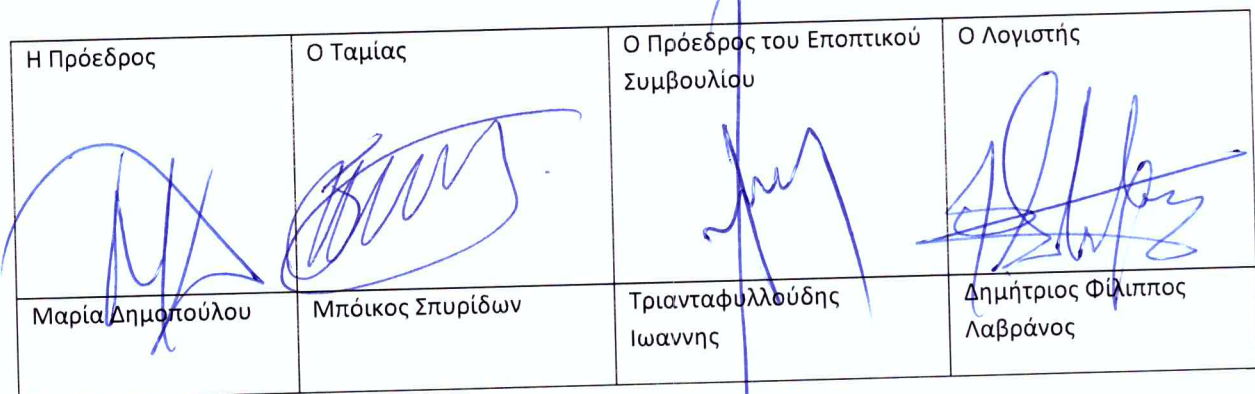 Η Πρόεδρος
Ο Ταμίας
Ο Πρόεδρος του Εποπτικού
Συμβουλίου
Ο Λογιστής
Μαρία Δημοπούλου
Μπόικος Σπυρίδων
Τριανταφυλλούδης
Ιωαννης
Δημήτριος Φίλιππος
Λαβράνος